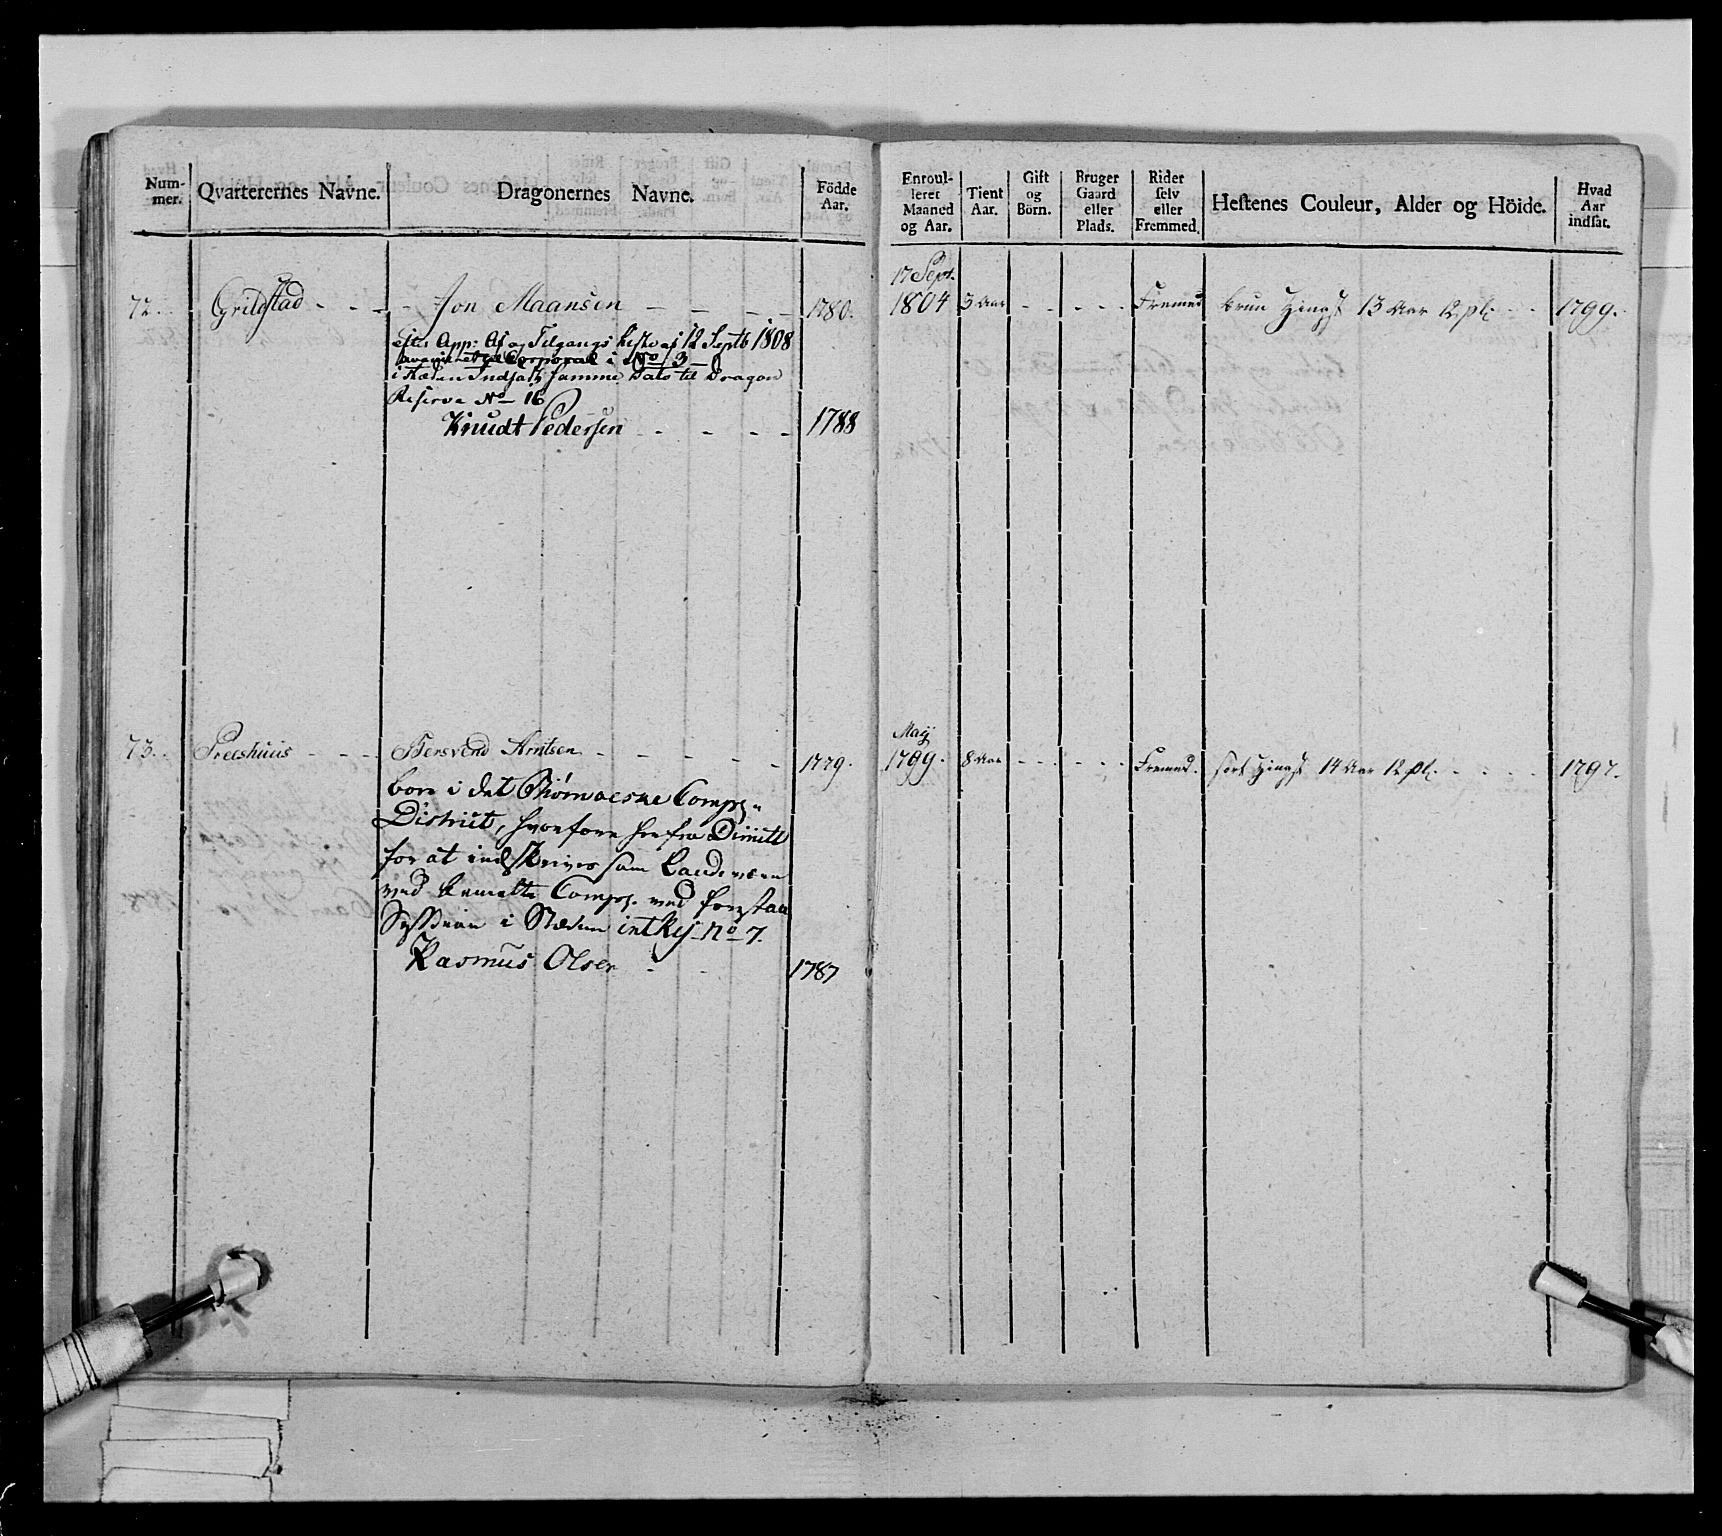 Num-
mer.
Qvarterernes Navne.
Dragonernes Navne.
Födde
Aar.
Enroul-
lerer
Maaned
og Aar.
Tient
Aar.
Gift
og
Börn.
Bruger
Gaard
eller
Plads.
Rider
selv
eller
Fremmed.
Hestenes Couleur, Alder og Höide.
Hvad
Aar
indsat.
17 Sept.
72. Grildstad - - - - Jon Maansen - - - - 1780. 1804 3 Aar - - - - - Fremed brun Hingst 13 Aar 12 pl: - - 1799.
efter App: Af og Tilgangs Liste af 12 Septb 1808
avanceret til Corporal i No 3
i stæden Indsatt samme Dato til Dragon
Reserve No 16
Knudt Pedersen - - - - 1788
May
73. Preeshuus - - - Bersvend Arntsen - - - - - 1779. 1799. 8 Aar - - - - - - Fremed. sort Hingst 14 Aar 12 pl. - - - - 1797.
bor i det Compg:
District, hvorfore her fra Dimitt
for at indskrives som Landeværn
ved bemelte Compg. ved forstaa
i Stæden int Rej No 7.
Rasmus Olsen - - - 1787